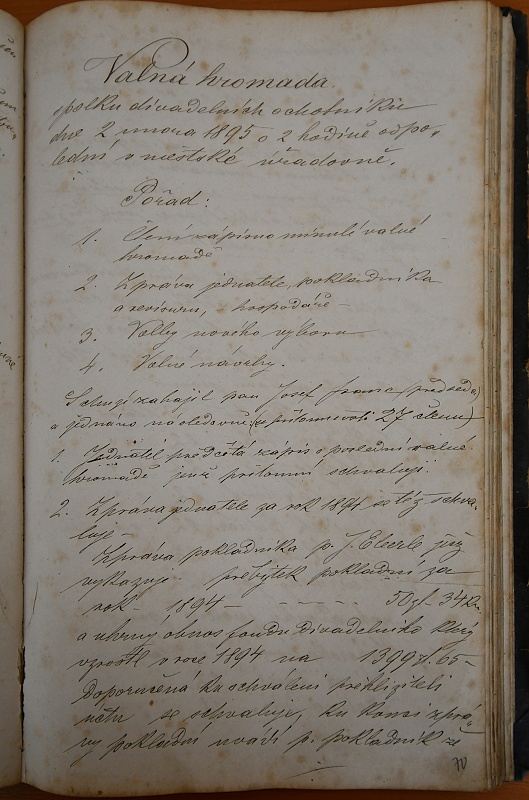 Valná hromada
spolku divadelních ochotníků
dne 2 února 1895 o 2 hodině odpo-
lední v městské úřadovně.
Pořad:
1. Čtení zápisu minulé valné
hromadě
2. Zpráva jednatele, pokladníka
a revisoru, hospodáře –
3. Volby nového výboru
4. Volné návrhy.
Schůzi zahájil pan Josef Franc (předseda)
a jednáno následovně (za přítomnosti 27 členů)
1. Jednatel předčítá zápis o poslední valné
hromadě jenž přítomní schvalují.
2. Zpráva jednatele za rok 1894 se též schva-
luje –
Zpráva pokladníka p. J. Eberle jež
vykazuje přebytek pokladní za
rok 1894 – – – – – 50 zl – 34 kr
a úhrnný obnos fondu divadelního který
vzrostl v roce 1894 na 1399 zl. 65 –
Doporučená ku schválení přehližiteli
účtu se schvaluje, ku konci zprá-
vy pokladní uvádí p. pokladník že
70